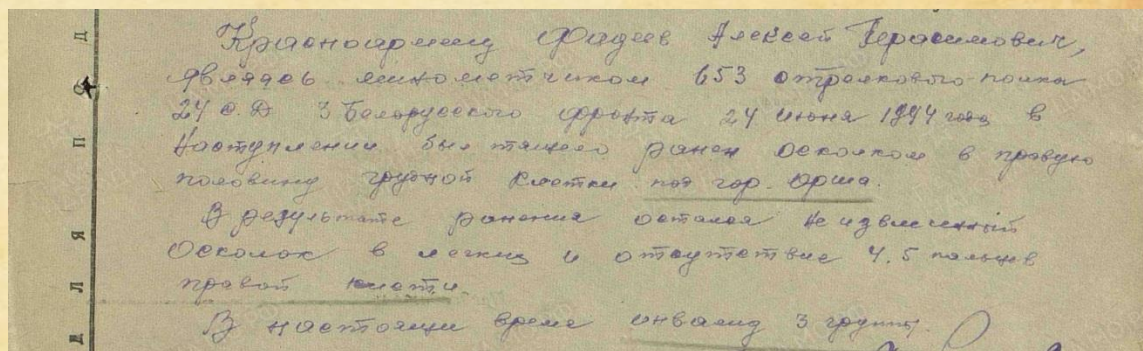 Красноармеец Фадеев Алексей Герасимович,
являясь минометчиком 653 стрелкового полка
24 С.Д 3 Белорусского фронта 24 июня 1944 года в
Наступлении был тяжело ранен осколком в правую
половину грудной клетки под гор. Орша.
В результате ранения остался не извлеченный
осколок в легких и отсутствие 4.5 пальцев
правой кисти.
В настоящи время инвалид 3 группы.
Д
Л
Я
П
О
Д